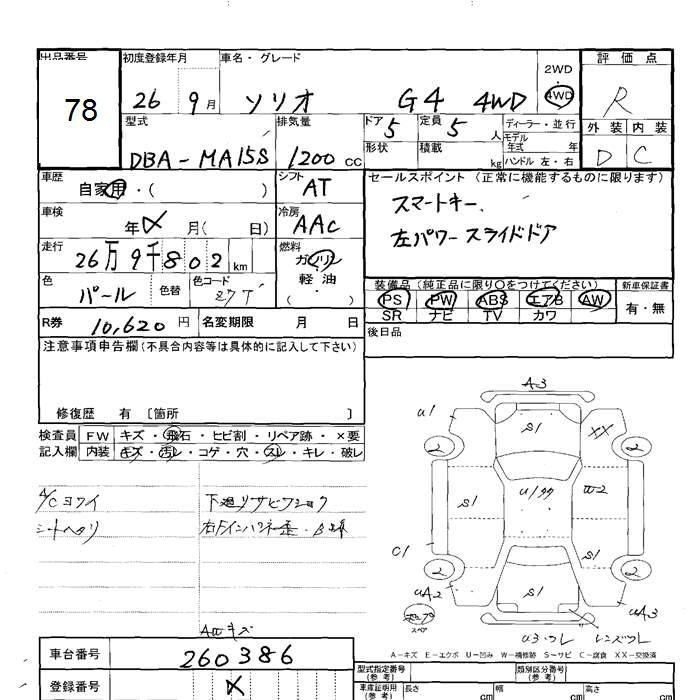 出品番号 初度登録年月 車名・グレード 2WD 評価点
78 26 9月 ソリオ G4 4WD 4WD R
型式 排気量 ドア 5 定員 5人 ディーラー・並行 外装 内装
DBA-MA15S 1200cc 形状 積載 kg モデル年式 年 D C
ハンドル 左・右
車歴 シフト セールスポイント(正常に機能するものに限ります)
自家用・( ) AT スマートキー、
車検 冷房
年 月( 日) AAC 左パワースライドドア
走行 燃料
26万9千802km ガソリン
色 色替 色コード 軽油 装備品(純正品に限り〇をつけてください) 新車保証書
パール ZJ7 ( ) PS PW ABS エアB AW 有・無
SR ナビ TV カワ
R券 10,620円 名変期限 月 日 後日品
注意事項申告欄(不具合内容等は具体的に記入して下さい)
修復歴 有 〔箇所 〕
検査員 FW キズ・飛石・ヒビ割・リペア跡・×要
記入欄 内装 キズ・汚レ・コゲ・穴・スレ・キレ・破レ
A/Cヨワイ 下廻リサビフショク
シートヘタリ
A3
U1 S1 XX
2 2
S1 W2
C1 S1
2 S1 2
UA2 UA3
スペア
U3・ワレ レンズワレ
A-キズ E-エクボ U-凹み W-補修跡 S-サビ C-腐食 XX-交換済
車台番号 260386
登録番号
型式指定番号(参考) 類別区分番号(参考)
車庫証明用(参考) 長さ cm 幅 cm 高さ cm